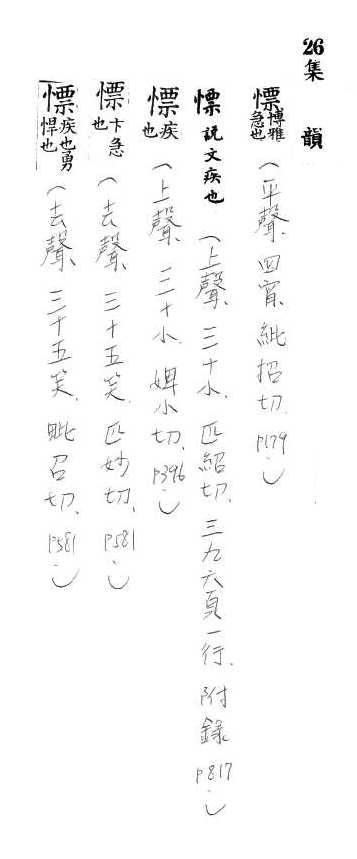 26集韻
慓博雅急也(平聲、四宵、紕招切、P179)
慓說文疾也(上聲、三十小、匹紹切、三九六頁一行、附錄P817)
慓疾也(上聲、三十小、婢小切、P396)
慓卞急也(去聲、三十五笑、匹妙切、P581)
慓疾也勇悍也(去聲、三十五笑、毗召切、P581)